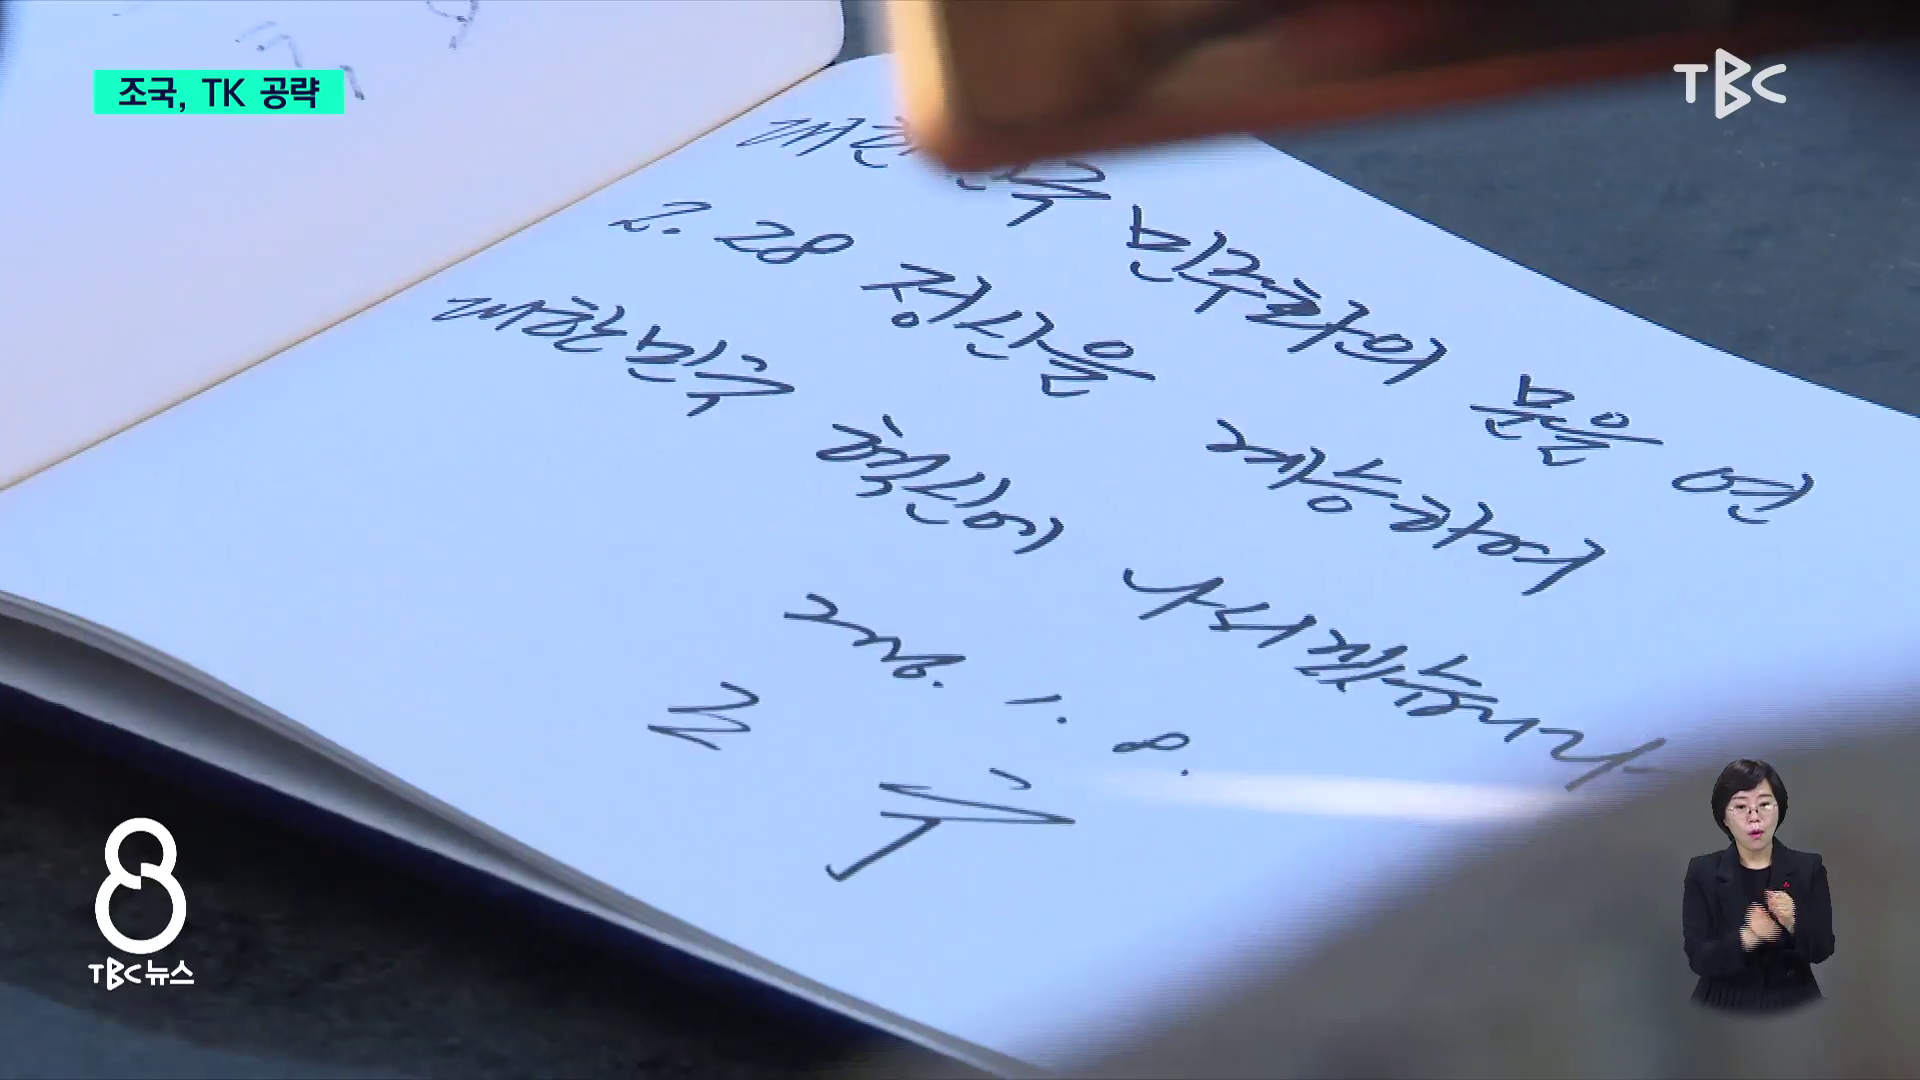 조국, TK 공략
TBC
대한민국 민주화의 문을 연
2. 28 정신을 계승하여
대한민국 혁신에 나서겠습니다
1. 8.
조 국
8
TBC뉴스